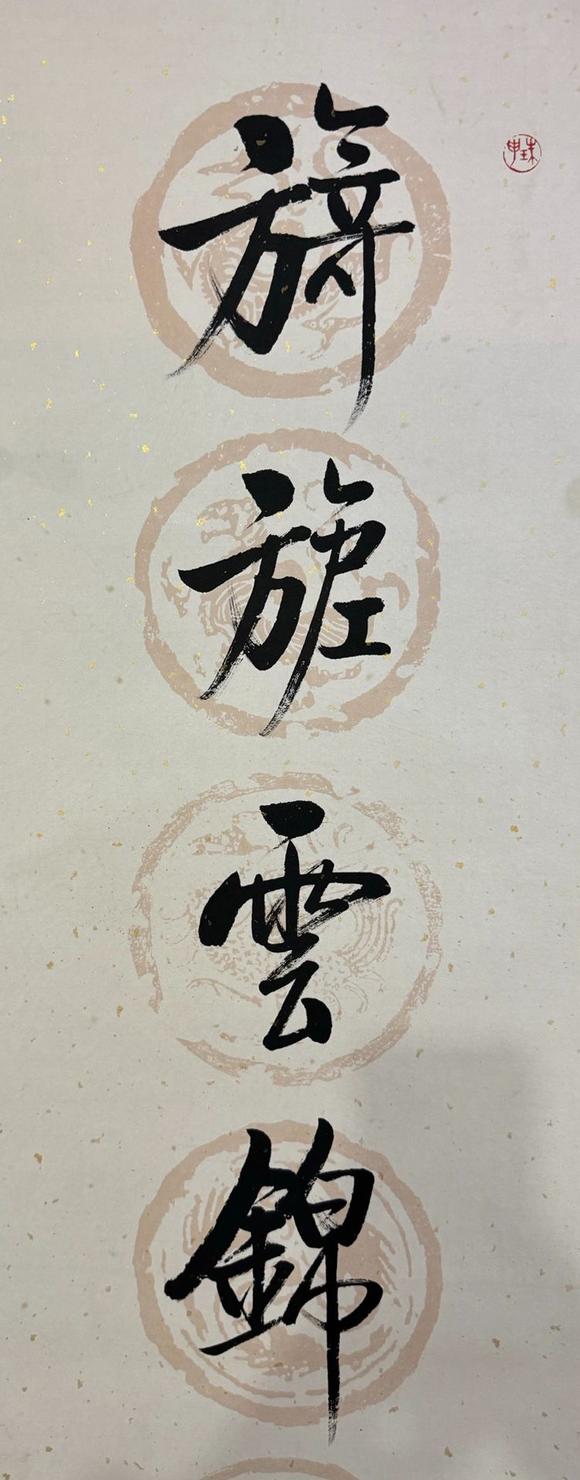 旖旎雲錦